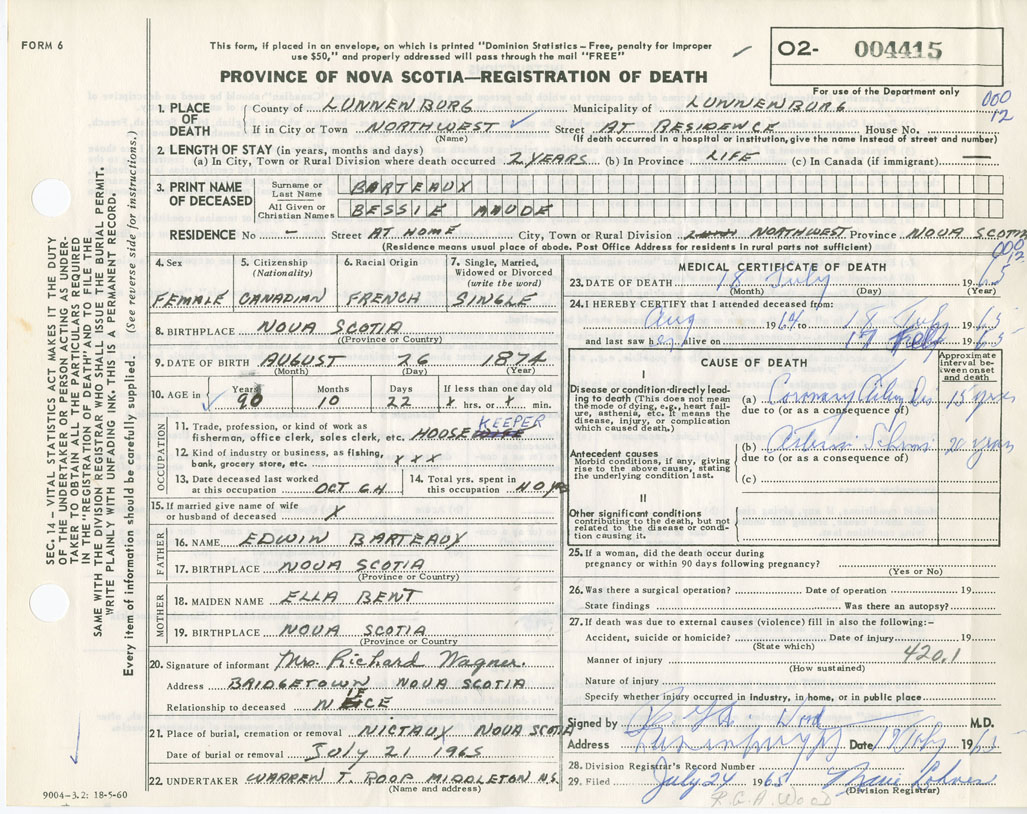 FORM 6
This form, if placed in an envelope, on which is printed "Dominion Statistics – Free, penalty for improper
use $50," and properly addressed will pass through the mail "FREE"
O2- 004415
PROVINCE OF NOVA SCOTIA—REGISTRATION OF DEATH
For use of the Department only
000
12
1. PLACE OF DEATH
County of LUNNENBURG Municipality of LUNNENBURG
If in City or Town NORTHWEST Street AT RESIDENCE House No.
(Name) (If death occurred in a hospital or institution, give the name instead of street and number)
2. LENGTH OF STAY (in years, months and days)
(a) In City, Town or Rural Division where death occurred 2 YEARS (b) In Province LIFE (c) In Canada (if immigrant) —
3. PRINT NAME OF DECEASED
Surname or Last Name BARTEAUX
All Given or Christian Names BESSIE MAUDE
RESIDENCE No – Street AT HOME City, Town or Rural Division NORTHWEST Province NOVA SCOTIA
(Residence means usual place of abode. Post Office Address for residents in rural parts not sufficient)
000
12
4. Sex FEMALE
5. Citizenship (Nationality) CANADIAN
6. Racial Origin FRENCH
7. Single, Married, Widowed or Divorced (write the word) SINGLE
8. BIRTHPLACE NOVA SCOTIA
(Province or Country)
9. DATE OF BIRTH AUGUST 26 1874
(Month) (Day) (Year)
10. AGE in Years 90 Months 10 Days 22 If less than one day old X hrs. or X min.
OCCUPATION
11. Trade, profession, or kind of work as
fisherman, office clerk, sales clerk, etc. HOOSE KEEPER
12. Kind of industry or business, as fishing,
bank, grocery store, etc. X X X
13. Date deceased last worked at this occupation OCT 64
14. Total yrs. spent in this occupation 40 YRS
15. If married give name of wife
or husband of deceased X
FATHER
16. NAME EDWIN BARTEAUX
17. BIRTHPLACE NOVA SCOTIA
(Province or Country)
MOTHER
18. MAIDEN NAME ELLA BENT
19. BIRTHPLACE NOVA SCOTIA
(Province or Country)
20. Signature of informant Mrs. Richard Wagner.
Address BRIDGETOWN NOVA SCOTIA
Relationship to deceased NIECE
21. Place of burial, cremation or removal NICTAUX NOVA SCOTIA
Date of burial or removal JULY 21 1965
22. UNDERTAKER WARREN T. ROOP MIDDLETON N.S.
(Name and address)
MEDICAL CERTIFICATE OF DEATH
23. DATE OF DEATH 18 July 1965
(Month) (Day) (Year)
24. I HEREBY CERTIFY that I attended deceased from:
Aug 1964 to 18 July 1965
and last saw her alive on 17 July 1965
CAUSE OF DEATH
Approximate interval between onset and death
I
Disease or condition directly leading to death (This does not mean the mode of dying, e.g., heart failure, asthenia, etc. It means the disease, injury, or complication which caused death.)
(a) Coronary 15 years
due to (or as a consequence of)
Antecedent causes
Morbid conditions, if any, giving rise to the above cause, stating the underlying condition last.
(b) 20 years
due to (or as a consequence of)
(c)
II
Other significant conditions
contributing to the death, but not related to the disease or condition causing it.
25. If a woman, did the death occur during
pregnancy or within 90 days following pregnancy?
(Yes or No)
26. Was there a surgical operation? Date of operation 19
State findings Was there an autopsy?
27. If death was due to external causes (violence) fill in also the following:–
Accident, suicide or homicide? Date of injury 19
(State which)
420.1
Manner of injury
(How sustained)
Nature of injury
Specify whether injury occurred in industry, in home, or in public place
Signed by Wood M.D.
Address Lunenburg NS Date 19 July 1965
28. Division Registrar's Record Number
29. Filed July 24 1965
(Division Registrar)
R.G.A. WOOD
SEC. 14 – VITAL STATISTICS ACT MAKES IT THE DUTY
OF THE UNDERTAKER OR PERSON ACTING AS UNDER-
TAKER TO OBTAIN ALL THE PARTICULARS REQUIRED
IN THE "REGISTRATION OF DEATH" AND TO FILE THE
SAME WITH THE DIVISION REGISTRAR WHO SHALL ISSUE THE BURIAL PERMIT.
WRITE PLAINLY WITH UNFADING INK. THIS IS A PERMANENT RECORD.
Every item of information should be carefully supplied. (See reverse side for instructions.)
9004-3.2: 18-5-60